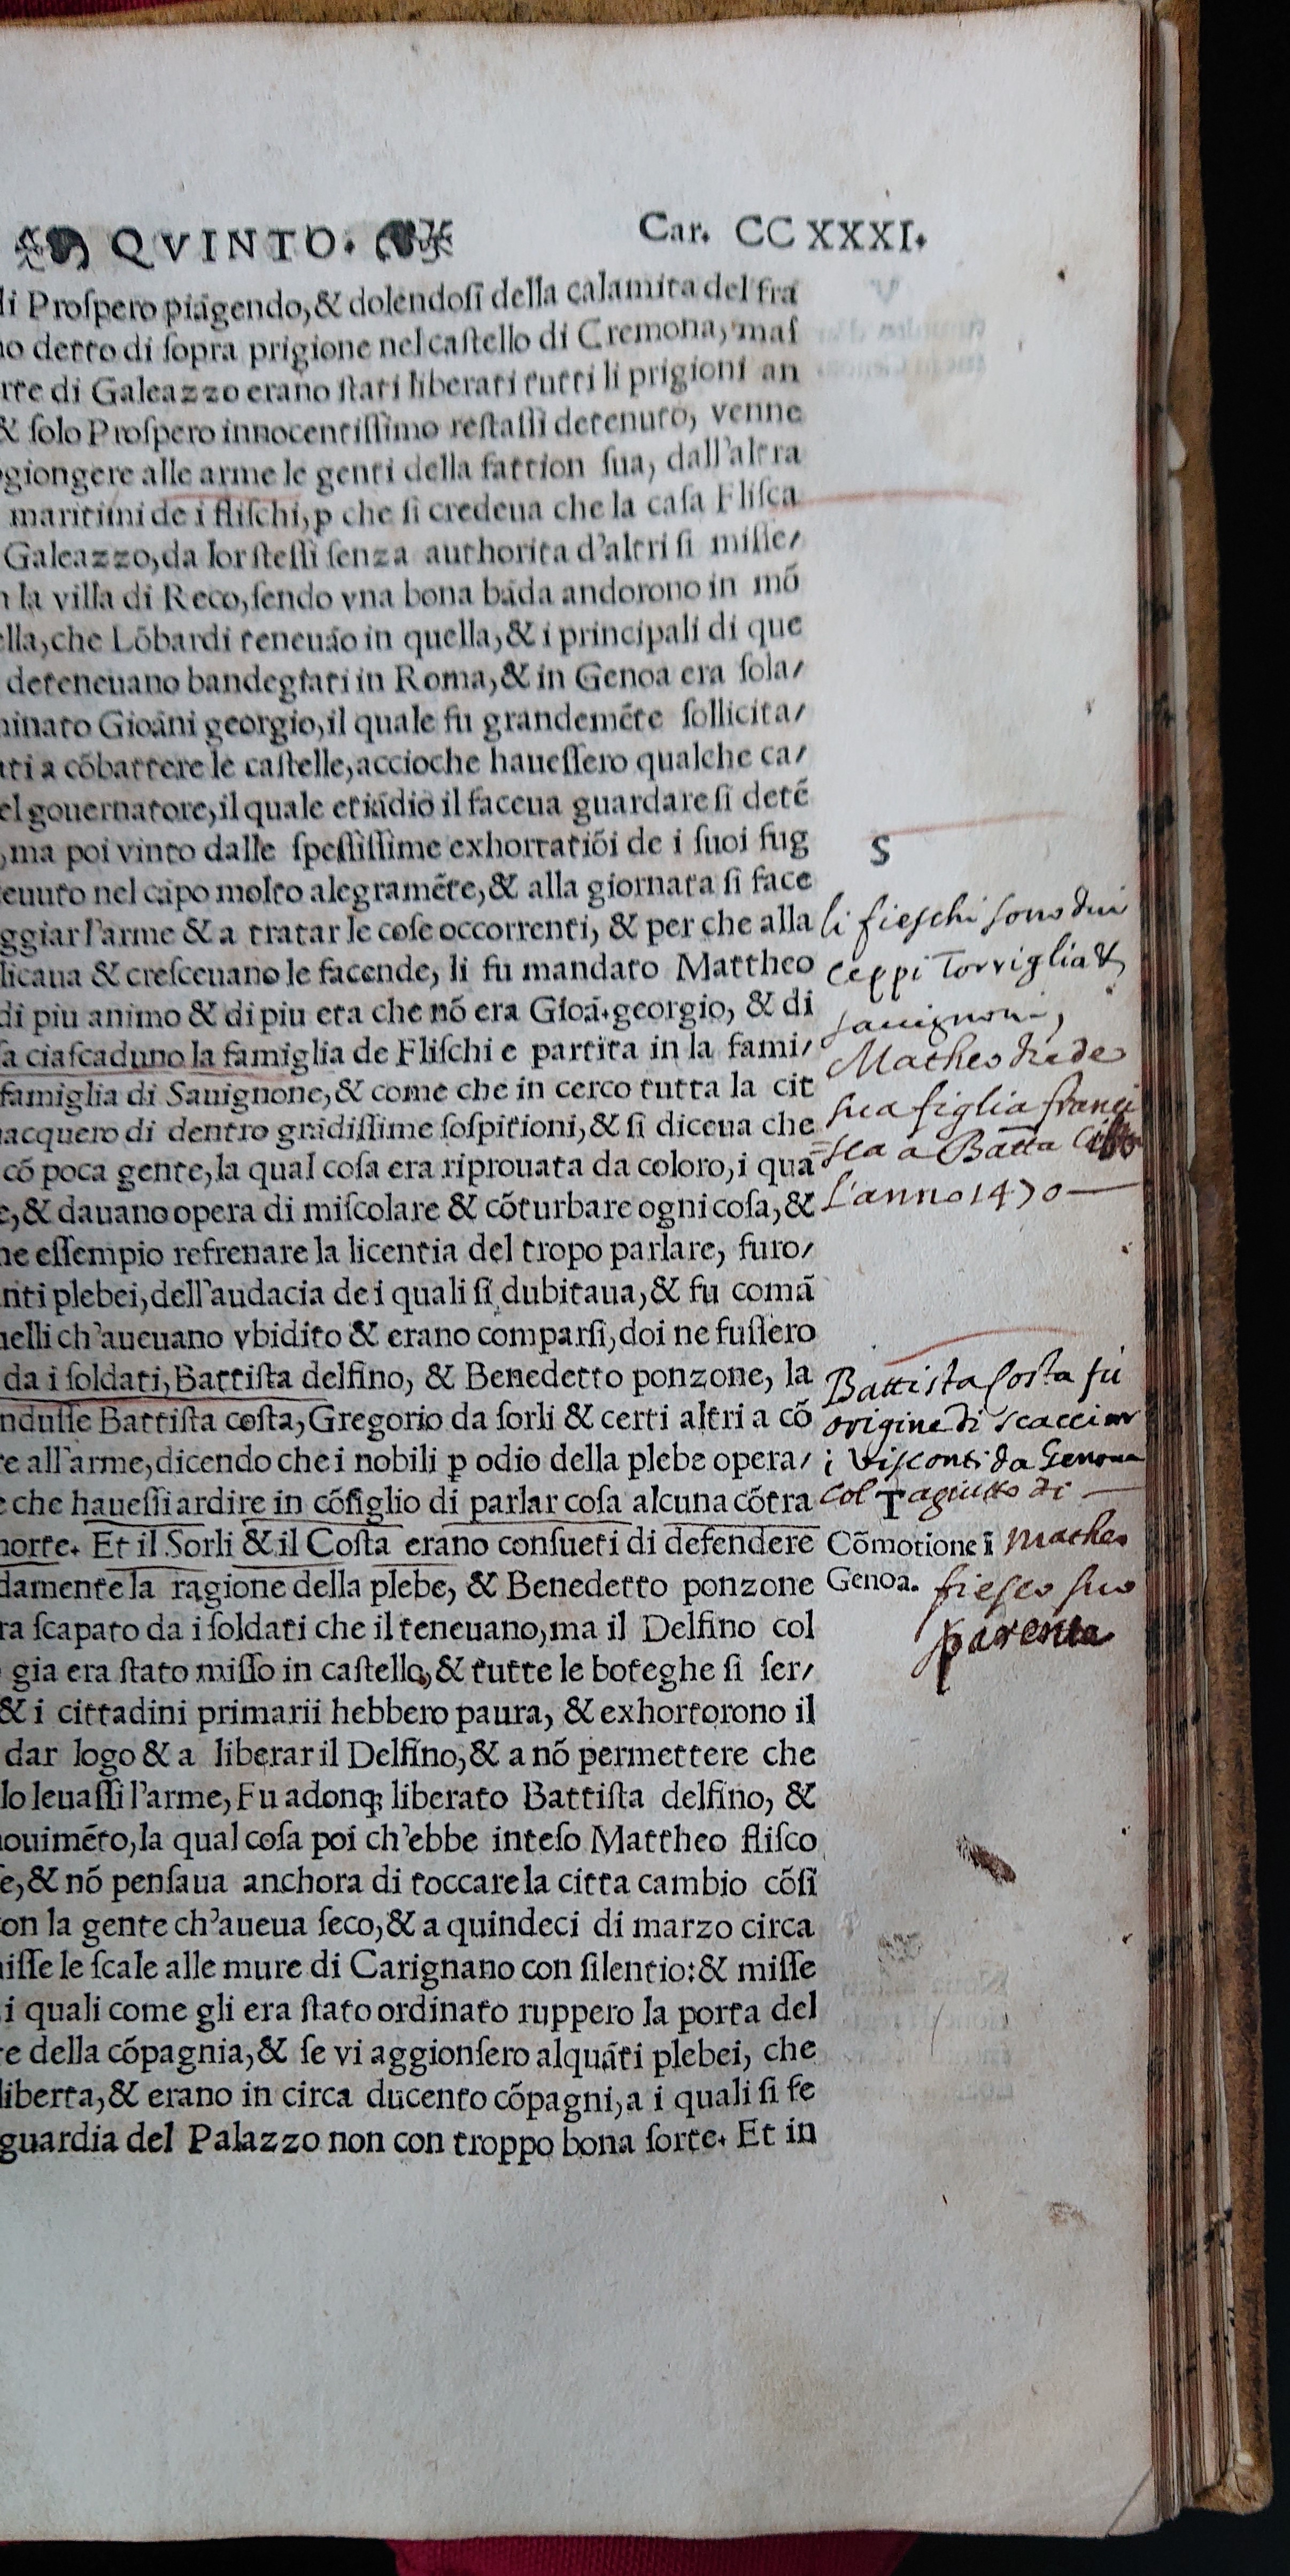 QVINTO.
Car. CCXXXI.
li Proſpero piãgendo, & dolendoſi della calamita del fra
no detto di ſopra prigione nel caſtello di Cremona, maſ
rte di Galeazzo erano ſtati liberati tutti li prigioni an
& ſolo Proſpero innocentiſſimo reſtaſſi detenuto, venne
ogiongere alle arme le genti della fattion ſua, dall'altra
maritimi de i fliſchi, ꝑ che ſi credeua che la caſa Fliſca
Galeazzo, da lor ſteſſi ſenza authorita d'altri ſi miſſe/
n la villa di Reco, ſendo vna bona bãda andorono in mõ
ella, che Lõbardi teneuão in quella, & i principali di que
deteneuano bandegiati in Roma, & in Genoa era ſola/
ninato Gioãni georgio, il quale fu grandemẽte ſollicita/
ati a cõbattere le caſtelle, accioche haueſſero qualche ca/
el gouernatore, il quale etiãdio il faceua guardare ſi detẽ
, ma poi vinto dalle ſpeſſiſſime exhortatiõi de i ſuoi ſug
euuto nel cãpo molto alegramẽte, & alla giornata ſi face
ggiar l'arme & a tratar le coſe occorrenti, & per che alla
licaua & creſceuano le facende, li fu mandato Mattheo
di piu animo & di piu eta che nõ era Gioã. georgio, & di
ſa ciaſcaduno la famiglia de Fliſchi e partita in la fami/
famiglia di Sauignone, & come che in cerco tutta la cit
nacquero di dentro grãdiſſime ſoſpitioni, & ſi diceua che
cõ poca gente, la qual coſa era riprouata da coloro, i qua
e, & dauano opera di miſcolare & cõturbare ogni coſa, &
ne eſſempio refrenare la licentia del tropo parlare, furo/
nti plebei, dell'audacia de i quali ſi dubitaua, & fu comã
uelli ch'aueuano vbidito & erano comparſi, doi ne fuſſero
da i ſoldati, Battiſta delfino, & Benedetto ponzone, la
nduſſe Battiſta coſta, Gregorio da ſorli & certi altri a cõ
re all'arme, dicendo che i nobili ꝑ odio della plebe opera/
e che haueſſi ardire in cõſiglio di parlar coſa alcuna cõtra
morte. Et il Sorli & il Coſta erano conſueti di defendere
damente la ragione della plebe, & Benedetto ponzone
ra ſcapato da i ſoldati che il teneuano, ma il Delfino col
gia era ſtato miſſo in caſtello, & tutte le boteghe ſi ſer/
& i cittadini primarii hebbero paura, & exhortorono il
dar logo & a liberar il Delfino, & a nõ permettere che
lo leuaſſi l'arme, Fu adonq; liberato Battiſta delfino, &
mouimẽto, la qual coſa poi ch'ebbe inteſo Mattheo fliſco
e, & nõ penſaua anchora di toccare la citta cambio cõſi
on la gente ch'aueua ſeco, & a quindeci di marzo circa
iſſe le ſcale alle mure di Carignano con ſilentio: & miſſe
i quali come gli era ſtato ordinato ruppero la porta del
re della cõpagnia, & ſe vi aggionſero alquãti plebei, che
liberta, & erano in circa ducento cõpagni, a i quali ſi fe
guardia del Palazzo non con troppo bona ſorte. Et in
S
li fieschi sono dui
ceppi Torriglia &
sauignoni,
Matheo diede
sua figlia franci
=sca a Batta Cibo
L'anno 1470
Battista Costa fù
origine di scacciar
i Visconti da Genoua
col T agiutto di
Cõmotione ĩ
Genoa.
Matheo
fiesco suo
parente